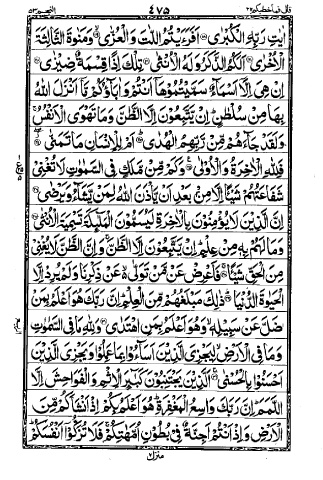 قال فما خطبکم ۲۷ ۴۷۵ النجم ۵۳
اٰیٰتِ رَبِّهِ الْكُبْرٰى ۞ اَفَرَءَیْتُمُ اللّٰتَ وَالْعُزّٰى ۞ وَمَنٰوةَ الثَّالِثَةَ
الْاُخْرٰى ۞ اَلَكُمُ الذَّكَرُ وَلَهُ الْاُنْثٰى ۞ تِلْكَ اِذًا قِسْمَةٌ ضِیْزٰى ۞
اِنْ هِیَ اِلَّاۤ اَسْمَآءٌ سَمَّیْتُمُوْهَاۤ اَنْتُمْ وَاٰبَآؤُكُمْ مَّاۤ اَنْزَلَ اللّٰهُ
بِهَا مِنْ سُلْطٰنٍ ؕ اِنْ یَّتَّبِعُوْنَ اِلَّا الظَّنَّ وَمَا تَهْوَى الْاَنْفُسُ ۚ
وَلَقَدْ جَآءَهُمْ مِّنْ رَّبِّهِمُ الْهُدٰى ۞ اَمْ لِلْاِنْسَانِ مَا تَمَنّٰى ۞
فَلِلّٰهِ الْاٰخِرَةُ وَالْاُوْلٰى ۞ وَكَمْ مِّنْ مَّلَكٍ فِی السَّمٰوٰتِ لَا تُغْنِیْ
شَفَاعَتُهُمْ شَیْـًٔا اِلَّا مِنْۢ بَعْدِ اَنْ یَّاْذَنَ اللّٰهُ لِمَنْ یَّشَآءُ وَیَرْضٰى ۞
اِنَّ الَّذِیْنَ لَا یُؤْمِنُوْنَ بِالْاٰخِرَةِ لَیُسَمُّوْنَ الْمَلٰٓئِكَةَ تَسْمِیَةَ الْاُنْثٰى ۞
وَمَا لَهُمْ بِهٖ مِنْ عِلْمٍ ؕ اِنْ یَّتَّبِعُوْنَ اِلَّا الظَّنَّ ۚ وَاِنَّ الظَّنَّ لَا یُغْنِیْ
مِنَ الْحَقِّ شَیْـًٔا ۞ فَاَعْرِضْ عَنْ مَّنْ تَوَلّٰى ۙ عَنْ ذِكْرِنَا وَلَمْ یُرِدْ اِلَّا
الْحَیٰوةَ الدُّنْیَا ۞ ذٰلِكَ مَبْلَغُهُمْ مِّنَ الْعِلْمِ ؕ اِنَّ رَبَّكَ هُوَ اَعْلَمُ بِمَنْ
ضَلَّ عَنْ سَبِیْلِهٖ ۙ وَهُوَ اَعْلَمُ بِمَنِ اهْتَدٰى ۞ وَلِلّٰهِ مَا فِی السَّمٰوٰتِ
وَمَا فِی الْاَرْضِ ۙ لِیَجْزِیَ الَّذِیْنَ اَسَآءُوْا بِمَا عَمِلُوْا وَیَجْزِیَ الَّذِیْنَ
اَحْسَنُوْا بِالْحُسْنٰى ۞ اَلَّذِیْنَ یَجْتَنِبُوْنَ كَبٰٓئِرَ الْاِثْمِ وَالْفَوَاحِشَ اِلَّا
اللَّمَمَ ؕ اِنَّ رَبَّكَ وَاسِعُ الْمَغْفِرَةِ ؕ هُوَ اَعْلَمُ بِكُمْ اِذْ اَنْشَاَكُمْ مِّنَ
الْاَرْضِ وَاِذْ اَنْتُمْ اَجِنَّةٌ فِیْ بُطُوْنِ اُمَّهٰتِكُمْ ۚ فَلَا تُزَكُّوْۤا اَنْفُسَكُمْ ؕ
منزل